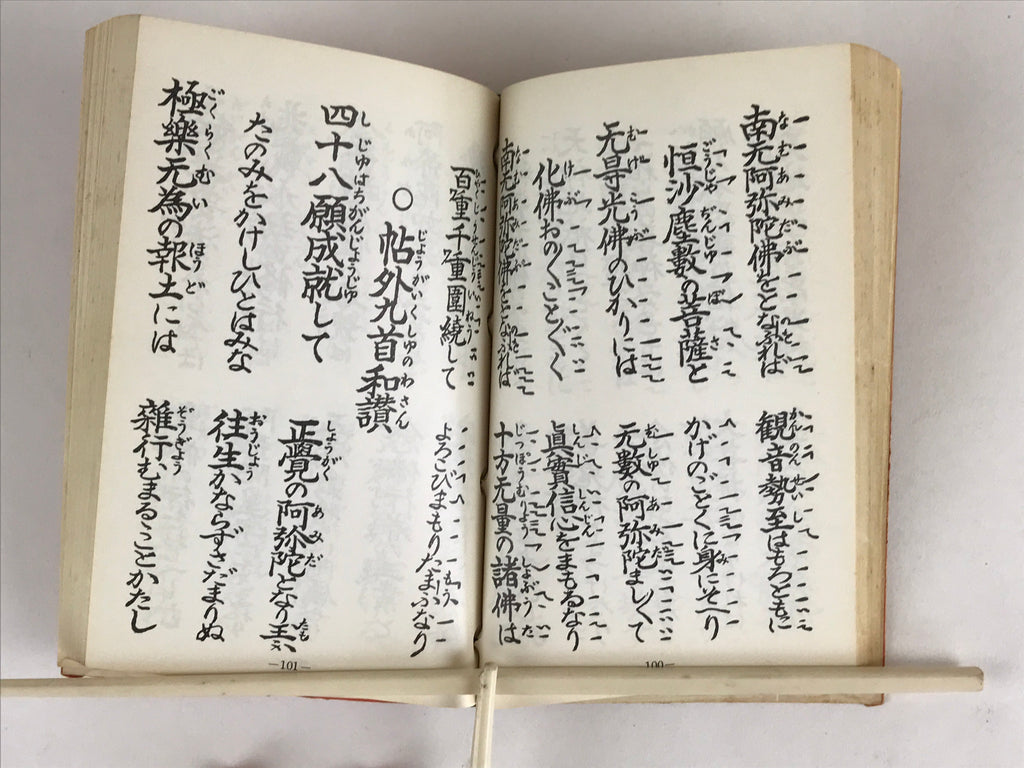 南无阿弥陀佛をとなふれば
観音勢至はもろともに
恒沙塵數の菩薩と
かげのごとくに身にそへり
无㝵光佛のひかりには
无數の阿弥陀まし〱て
化佛おの〱こと〲く
眞實信心をまもるなり
南无阿弥陀佛をとなふれば
十方无量の諸佛は
—100—
百重千重圍繞して
よろこびまもりたまふなり
○ 帖外九首和讃
四十八願成就して
正覺の阿弥陀となり玉ふ
たのみをかけしひとはみな
往生かならずさだまりぬ
極樂无為の報土には
雜行むまることかたし
—101—